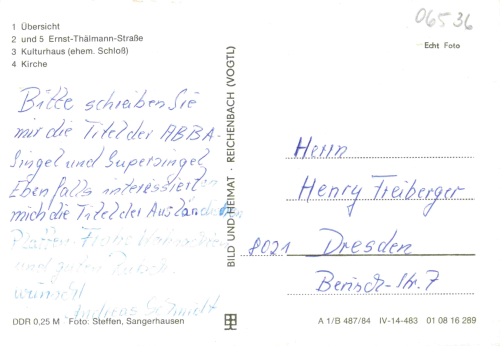 1 Übersicht
2 und 5 Ernst-Thälmann-Straße
3 Kulturhaus (ehem. Schloß)
4 Kirche
Bitte schreiben Sie
mir die Titel der ABBA-
Singel und Supersingel
Ebenfalls interessiert
mich die Titel der Ausländischen
Platten. Frohe Weihnachten
und guten Rutsch
wünscht
Andreas Schmidt
DDR 0,25 M Foto: Steffen, Sangerhausen
BILD UND HEIMAT · REICHENBACH (VOGTL)
06536
Echt Foto
Herrn
Henry Freiberger
8021 Dresden
-Str. 7
A 1/B 487/84 IV-14-483 01 08 16 289